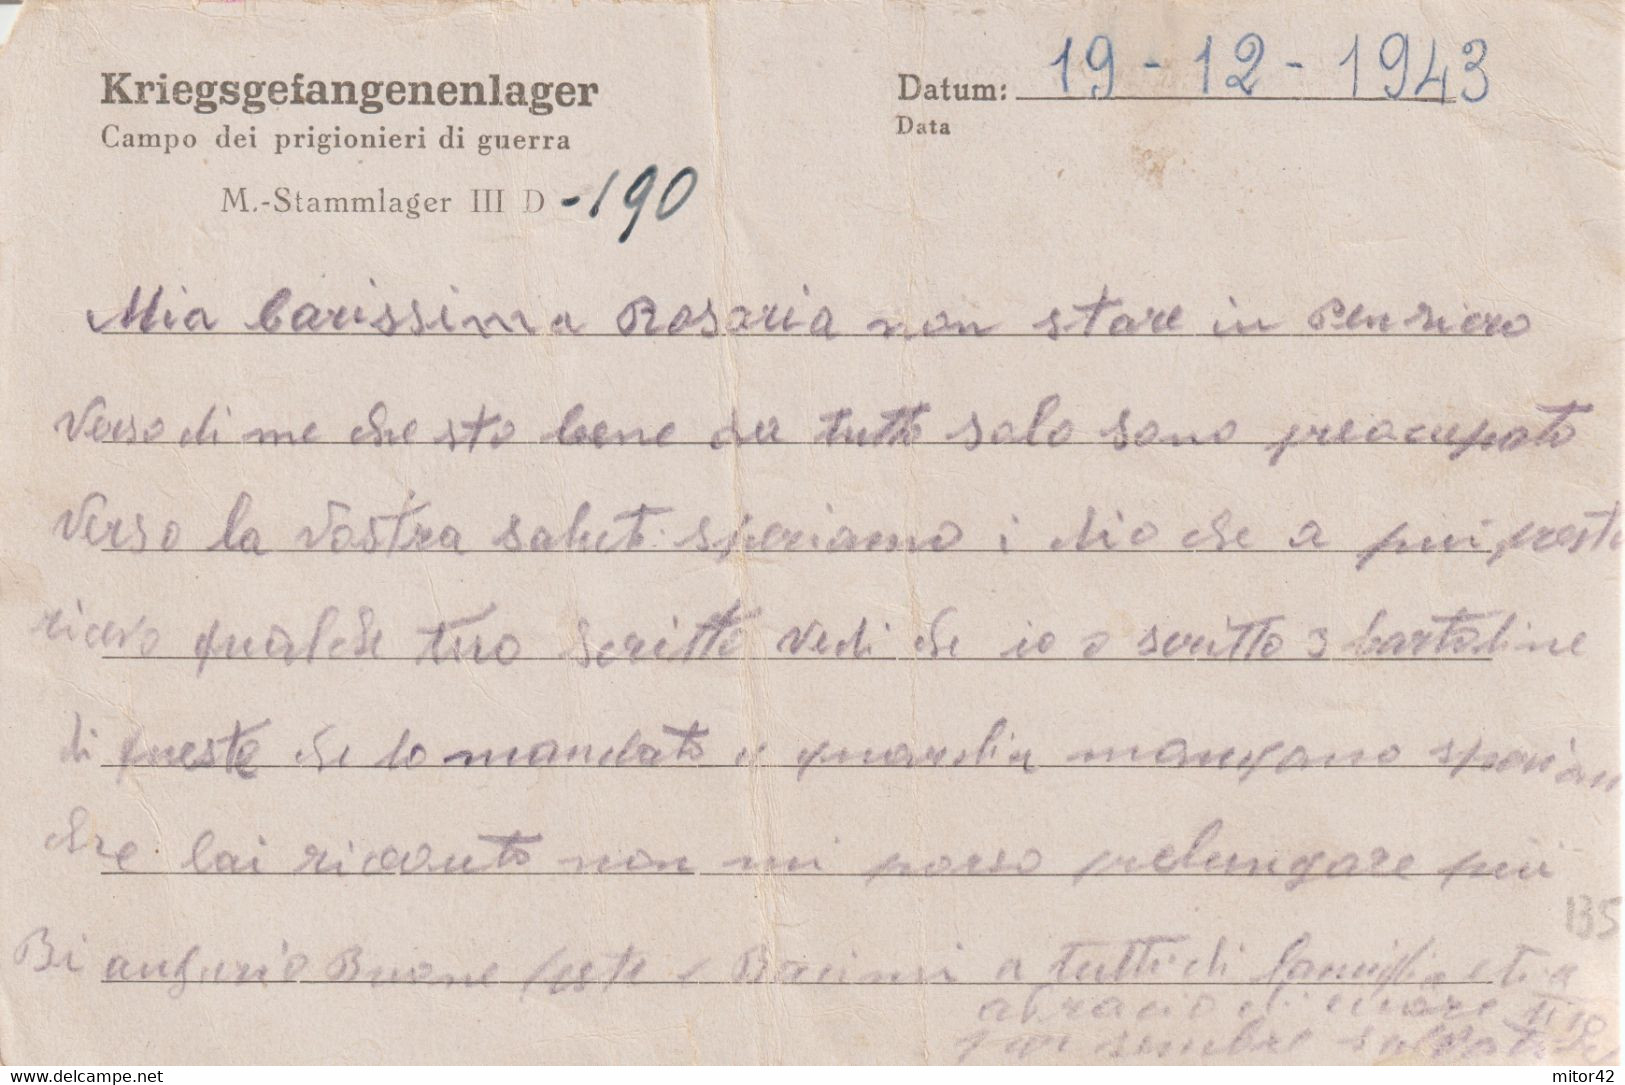 Kriegsgefangenenlager
Campo dei prigionieri di guerra
M.-Stammlager III D -190
Datum: 19-12-1943
Data
Mia Carissima Rosaria non stare in Pensiero
verso di me che sto bene da tutto solo sono preocupato
verso la vostra salut speriamo i dio che a piu presto
ricevo qualche tuo scritto vedi che io o scritto 3 cartoline
di queste che lo mandato e quardia mangano
che lai ricevuto non mi posso prelungare più
Bi augurio Buone feste e Bacioni a tutti di famiglia e ti
abracio di cuore
sembre
135
mitor42